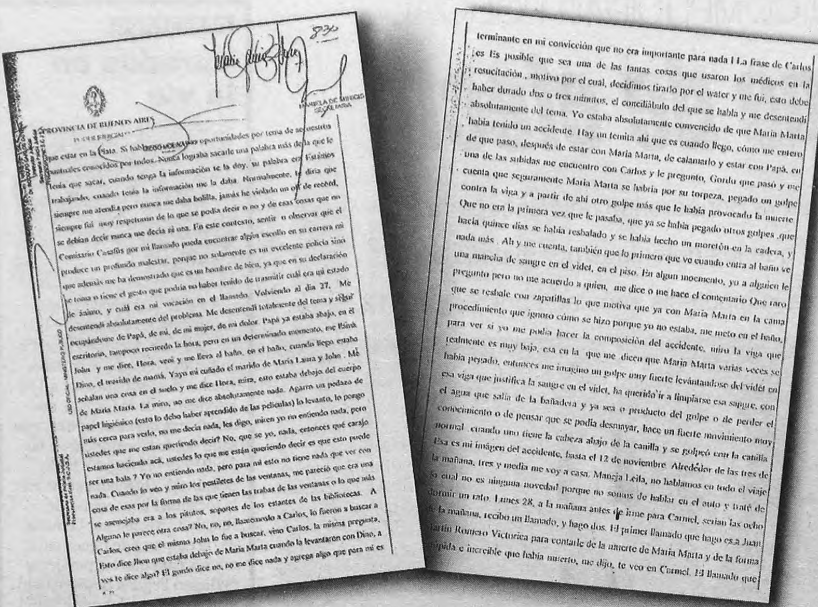 830
MANUELA DE MERCED
SECRETARIA
PROVINCIA DE BUENOS AIRES
PODER JUDICIAL
que estar en la Plata. Si oportunidades por tema de secuestros
puntuales conocidos por todos. Nunca lograba sacarle una palabra más de la que le
tenía que sacar, cuando tenga la información se la doy, su palabra era Estamos
trabajando, cuando tenía la información me la daba. Normalmente, le diría que
siempre me atendía pero nunca me daba bolilla, jamás he violado un off de record,
siempre fui muy respetuoso de lo que se podía decir o no y de esas cosas que no
se debían decir nunca me decía ni una. En este contexto, sentir u observar que el
Comisario Casafús por mi llamado pueda encontrar algún escollo en su carrera mi
produce un profundo malestar, porque no solamente es un excelente policía sino
que además me ha demostrado que es un hombre de bien, ya que en su declaración
se toma o tiene el gesto que podría no haber tenido de transmitir cuál era mi estado
de ánimo, y cuál era mi vocación en el llamado. Volviendo al día 27, Me
desentendí absolutamente del problema. Me desentendí totalmente del tema y seguí
ocupándome de Papá, de mí, de mi mujer, de mi dolor. Papá ya estaba abajo, en el
escritorio, tampoco recuerdo la hora, pero en un determinado momento, me llama
John y me dice, Hora, vení y me lleva al baño, en el baño, cuando llego estaba
Dino, el marido de mamá. Yayo mi cuñado el marido de María Laura y John . Me
señalan una cosa en el suelo y me dice Hora, mira, esto estaba debajo del cuerpo
de María Marta. La miro, no me dice absolutamente nada. Agarra un pedazo de
papel higiénico (esto lo debo haber aprendido de las películas) lo levanto, lo pongo
más cerca para verlo, no me decía nada, les digo, miren yo no entiendo nada, pero
ustedes que me están queriendo decir? No, que se yo, nada, entonces qué carajo
estamos haciendo acá, ustedes lo que me están queriendo decir es que esto puede
ser una bala ? Yo no entiendo nada, pero para mi esto no tiene nada que ver con
nada. Cuando lo veo y miro los pestiletes de las ventanas, me pareció que era una
cosa de esas por la forma de las que tienen las trabas de las ventanas o lo que más
se asemejaba era a los pitutos, soportes de los estantes de las bibliotecas. A
Alguno le parece otra cosa? No, no, no, llamémoslo a Carlos, lo fueron a buscar a
Carlos, creo que el mismo John lo fue a buscar, vino Carlos, la misma pregunta,
Esto dice Jhon que estaba debajo de María Marta cuando la levantaron con Dino, a
vos te dice algo? El gordo dice no, no me dice nada y agrega algo que para mi es
terminante en mi convicción que no era importante para nada | La frase de Carlos
es Es posible que sea una de las tantas cosas que usaron los médicos en la
resucitación , motivo por el cual, decidimos tirarlo por el water y me fui, esto debe
haber durado dos o tres minutos, el conciliábulo del que se habla y me desentendí
absolutamente del tema. Yo estaba absolutamente convencido de que María Marta
había tenido un accidente. Hay un temita ahí que es cuando llego, cómo me entero
de que paso, después de estar con María Marta, de calmarlo y estar con Papá, en
una de las subidas me encuentro con Carlos y le pregunto, Gordo que pasó y me
cuenta que seguramente María Marta se habría por su torpeza, pegado un golpe
contra la viga y a partir de ahí otro golpe más que le había provocado la muerte
Que no era la primera vez que le pasaba, que ya se había pegado otros golpes ,que
hacía quince días se había resbalado y se había hecho un moretón en la cadera, y
nada más . Ah y me cuenta, también que lo primero que ve cuando entra al baño ve
una mancha de sangre en el videt, en el piso. En algun momento, yo a alguien le
pregunto pero no me acuerdo a quien, me dice o me hace el comentario Que raro
que se resbale con zapatillas lo que motiva que ya con María Marta en la cama
procedimiento que ignoro cómo se hizo porque yo no estaba, me meto en el baño,
para ver si yo me podía hacer la composición del accidente, miro la viga que
realmente es muy baja, esa en la que me dicen que María Marta varias veces se
había pegado, entonces me imagino un golpe muy fuerte levantándose del videt en
esa viga que justifica la sangre en el videt, ha querido ir a limpiarse esa sangre, con
el agua que salía de la bañadera y ya sea o producto del golpe o de perder el
conocimiento o de pensar que se podía desmayar, hace un fuerte movimiento muy
normal cuando uno tiene la cabeza abajo de la canilla y se golpeó con la canilla
Esa es mi imágen del accidente, hasta el 12 de noviembre. Alrededor de las tres de
la mañana, tres y media me voy a casa. Maneja Leila, no hablamos en todo el viaje
lo cual no es ninguna novedad porque no somos de hablar en el auto y traté de
dormir un rato. Lunes 28, a la mañana antes de irme para Carmel, serían las ocho
de la mañana, recibo un llamado, y hago dos. El primer llamado que hago es a Juan
Martín Romero Victorica para contarle de la muerte de María Marta y de la forma
estúpida e increíble que había muerto, me dijo, te veo en Carmel. El llamado que